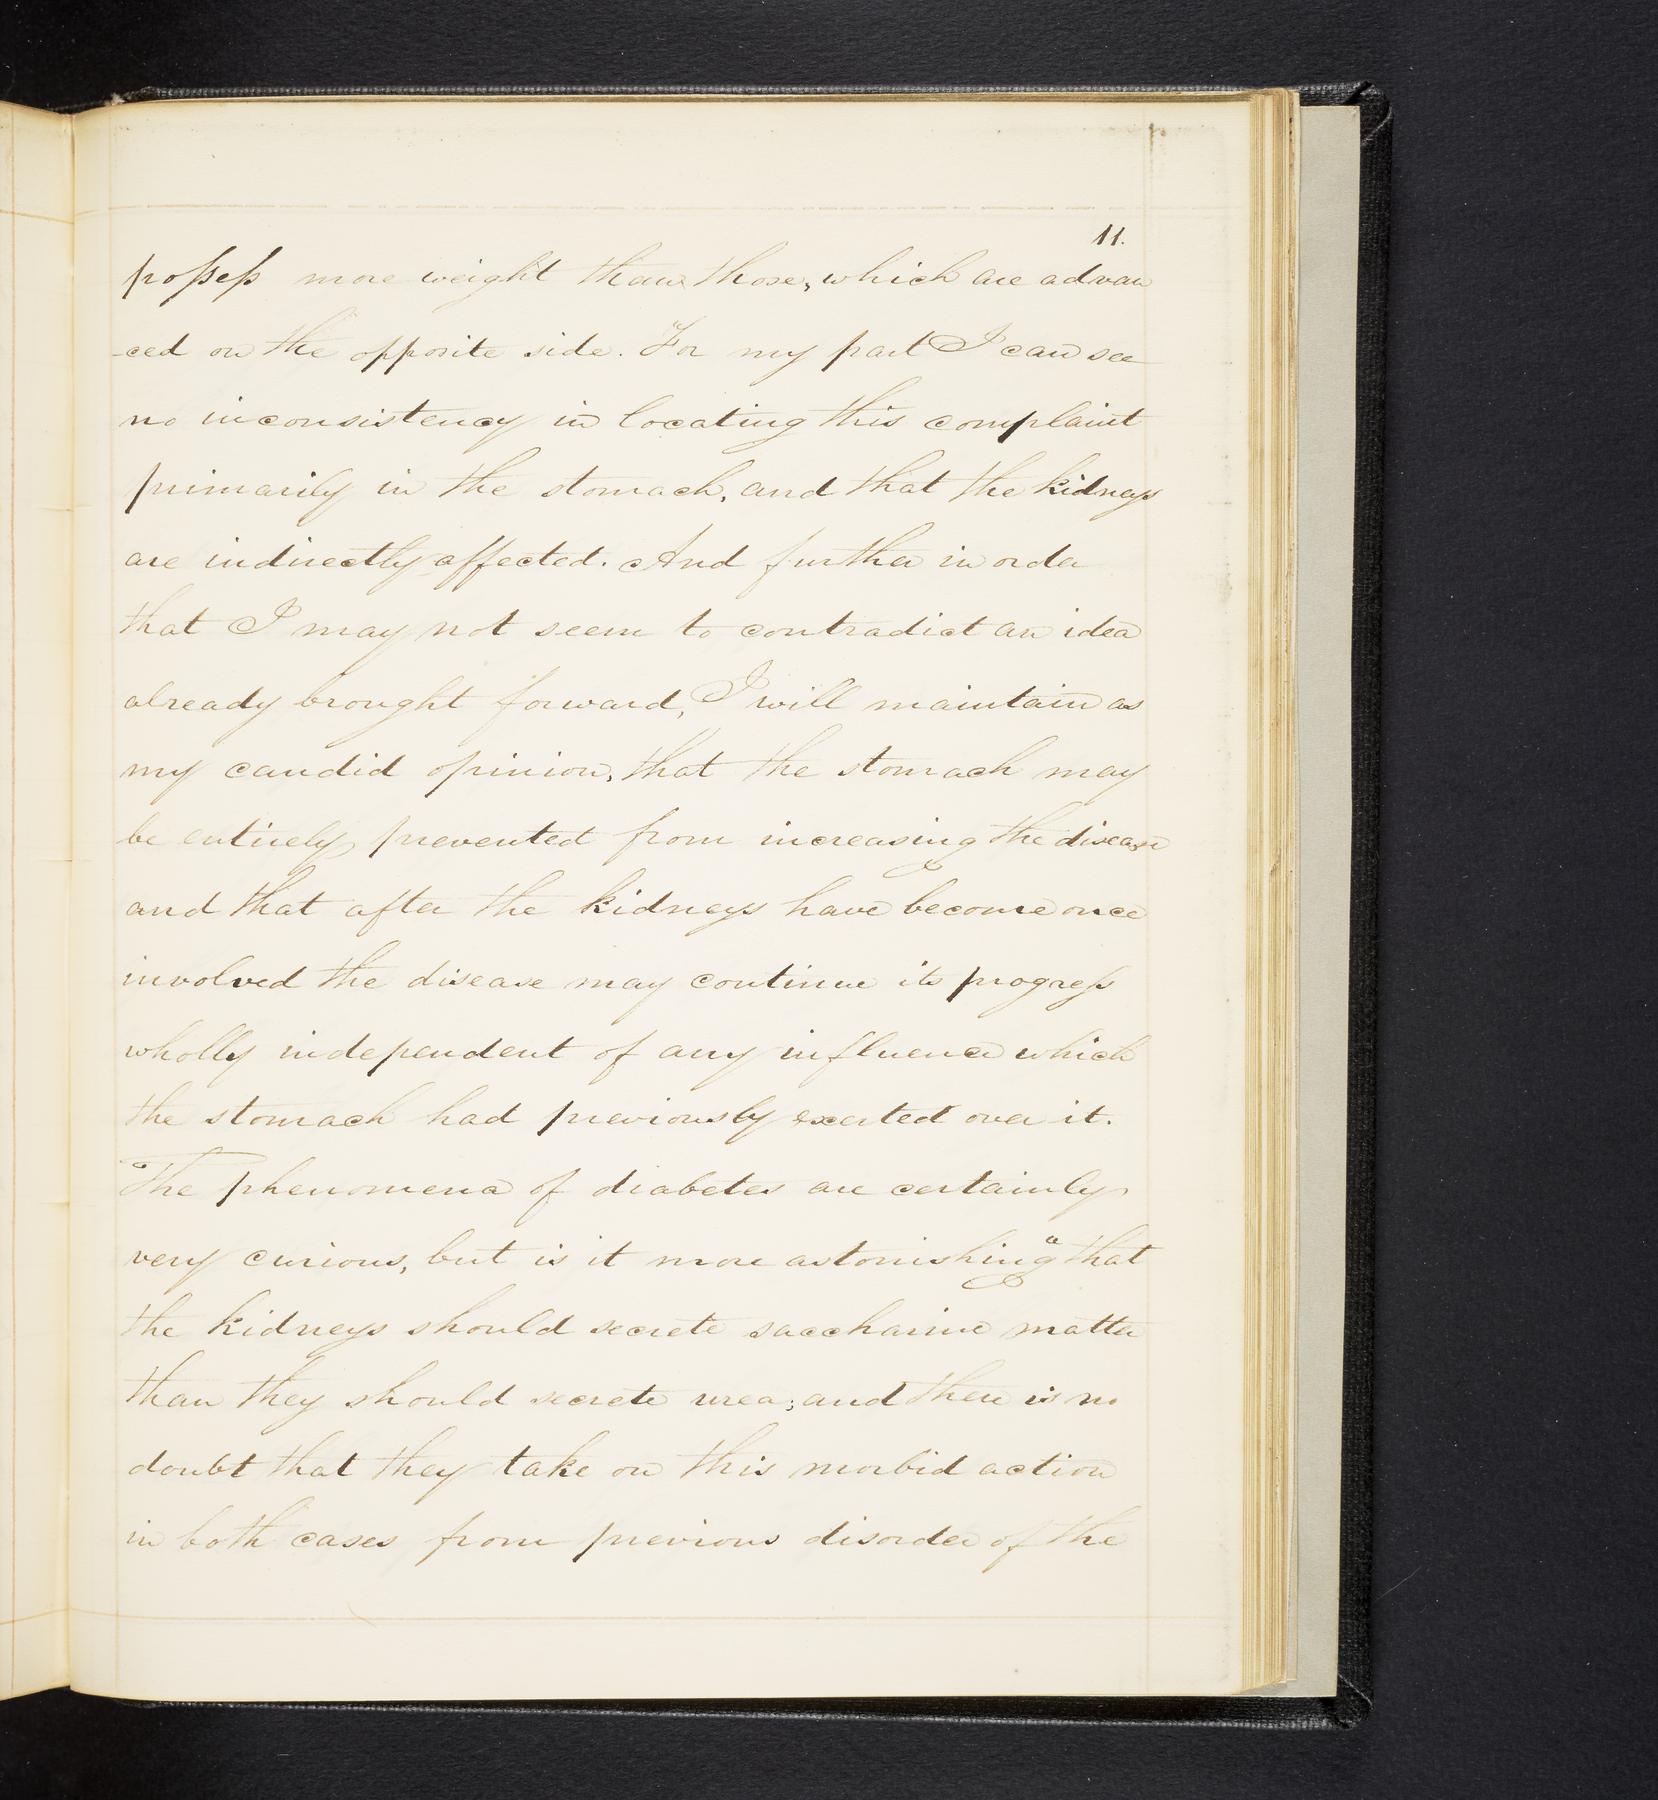 11.
possess more weight than those, which are advan
-ced on the opposite side. For my part I can see
no inconsistency in locating this complaint
primarily in the stomach, and that the kidneys
are indirectly affected. And further in order
that I may not seem to contradict an idea
already brought forward, I will maintain as
my candid opinion, that the stomach may
be entirely prevented from increasing the disease
and that after the kidneys have become once
involved the disease may continue its progress
wholly independent of any influence which
the stomach had previously exerted over it.
The phenomena of diabetes are certainly
very curious, but is it more astonishing "that
the kidneys should secrete saccharine matter
than they should secrete urea; and there is no
doubt that they take on this morbid action
in both cases from previous disorder of the